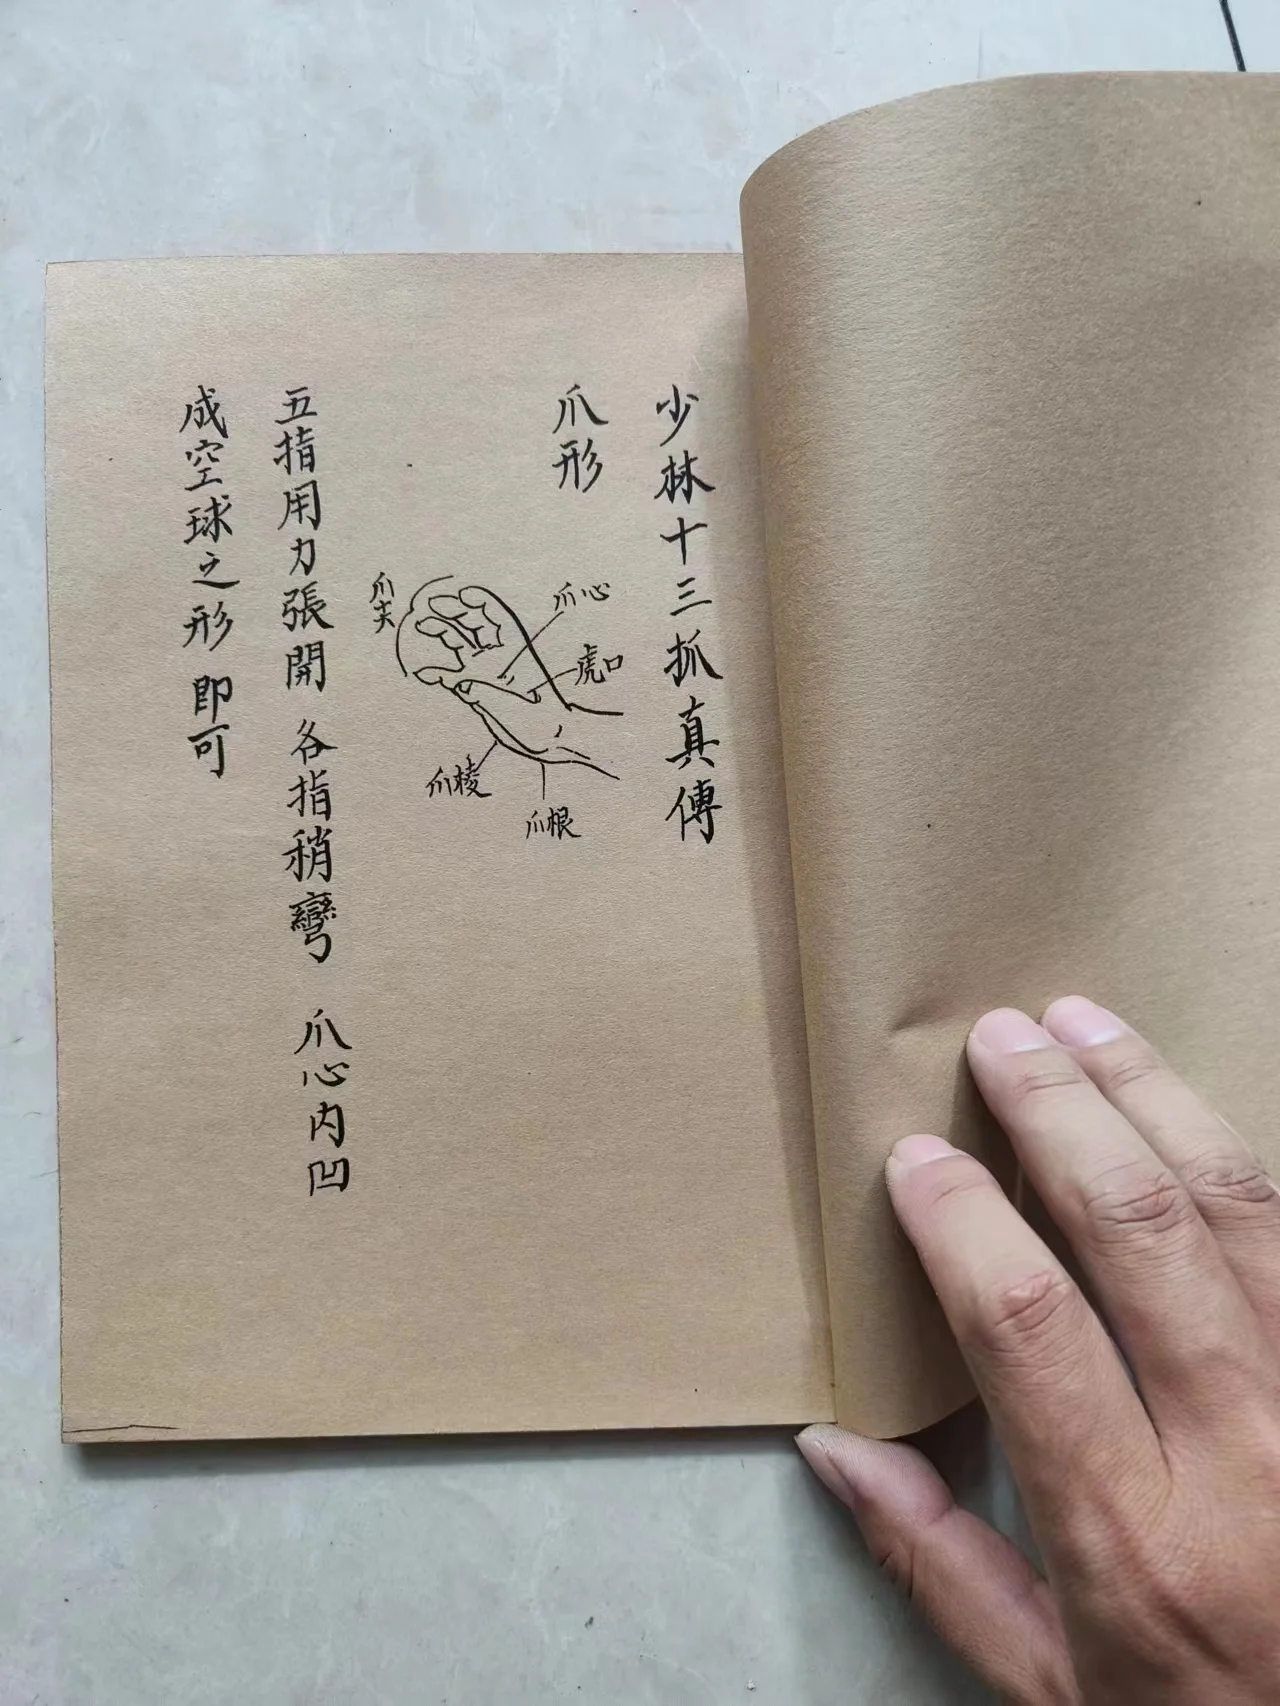 少林十三抓真傳
爪形
爪心
虎口
爪尖
爪棱
爪根
五指用力張開 各指稍彎 爪心内凹
成空球之形 即可